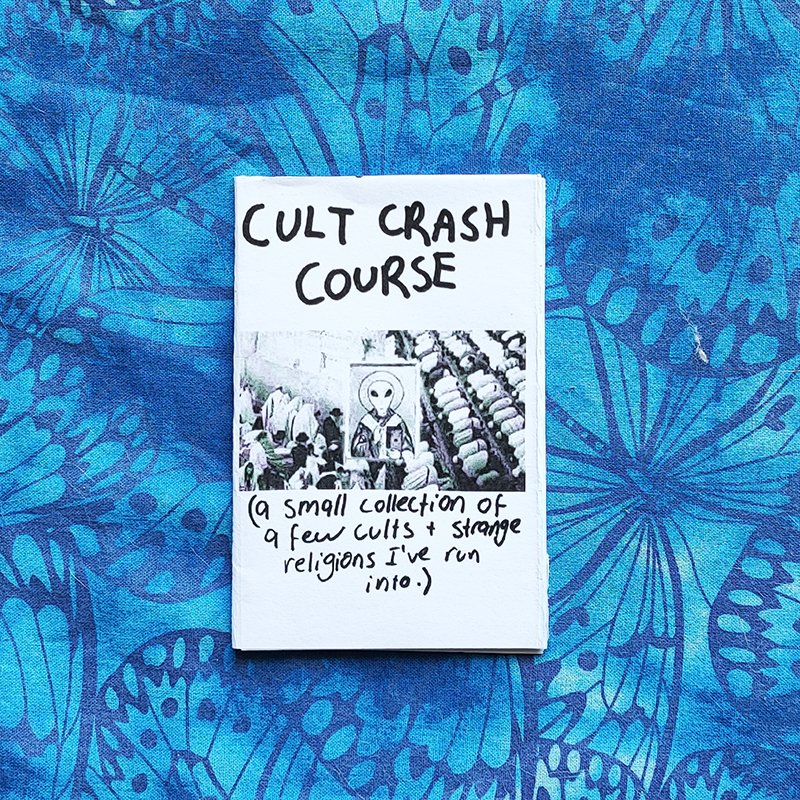 CULT CRASH
COURSE
(a small collection of
a few cults + strange
religions I've run
into.)